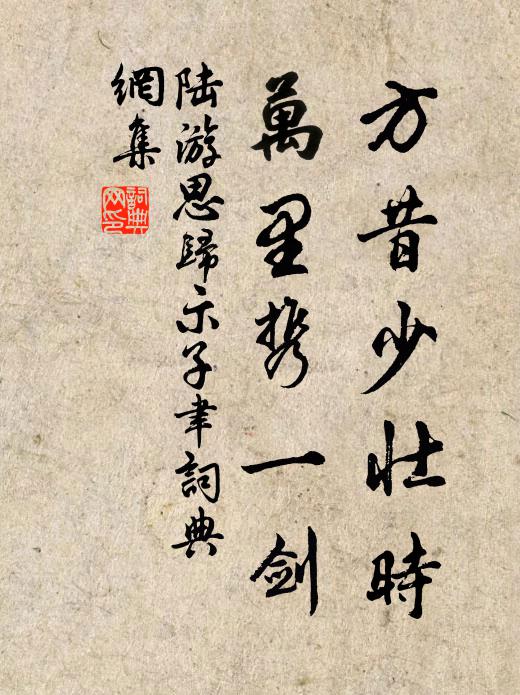 方昔少壯時
萬里携一剑
陆游思歸示子聿詞典
網集
詞典
网印